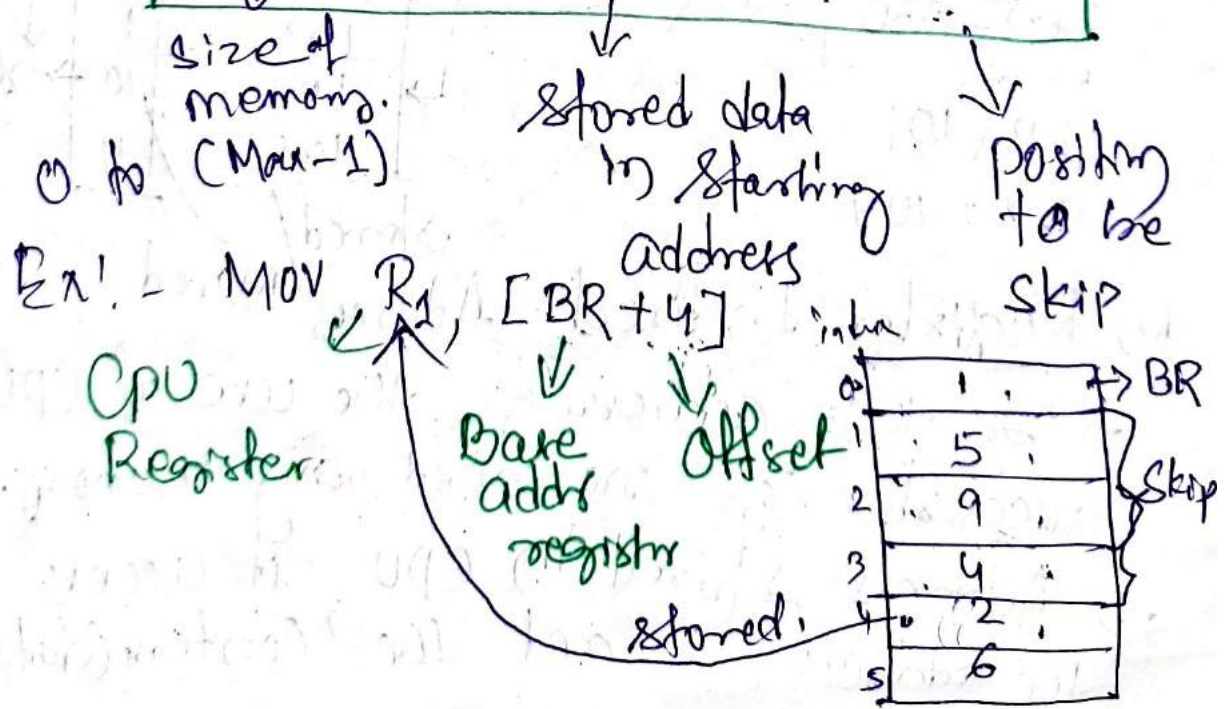 size of
memory.
0 to (Max-1)
stored data
in starting
address
position
to be
skip
Ex:- MOV R1, [BR+4]
CPU
Register
Base
addr
register
Offset
0 1 → BR
1 5
2 9
3 4
Skip
4 2
5 6
stored.